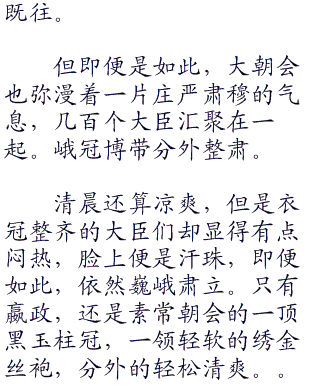 既往。
但即便是如此，大朝会
也弥漫着一片庄严肃穆的气
息，几百个大臣汇聚在一
起。峨冠博带分外整肃。
清晨还算凉爽，但是衣
冠整齐的大臣们却显得有点
闷热，脸上便是汗珠，即便
如此，依然巍峨肃立。只有
嬴政，还是素常朝会的一顶
黑玉柱冠，一领轻软的绣金
丝袍，分外的轻松清爽。。